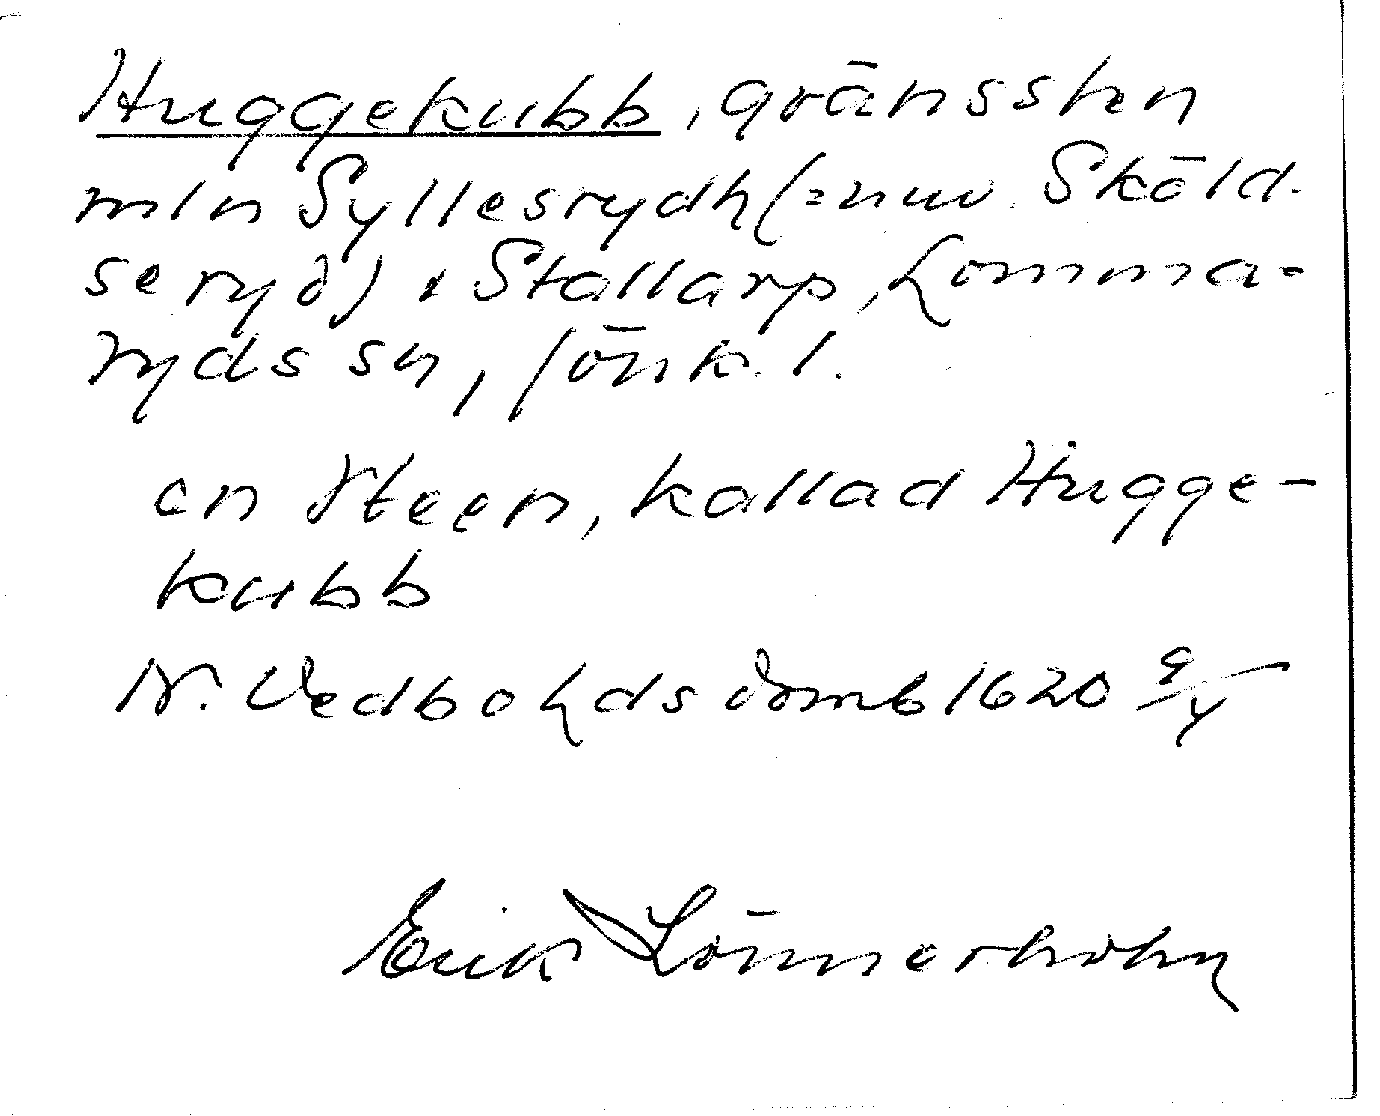 Huggekubb, gränssten
mln Syllesrydh (= nuv. Sköld-
seryd) & Stallarp, Lomma-
ryds sn, Jönk. l.
en Steen, kallad Hugge-
kubb
N. Vedbo hds domb 1620 9/4
Erik Lönnerholm